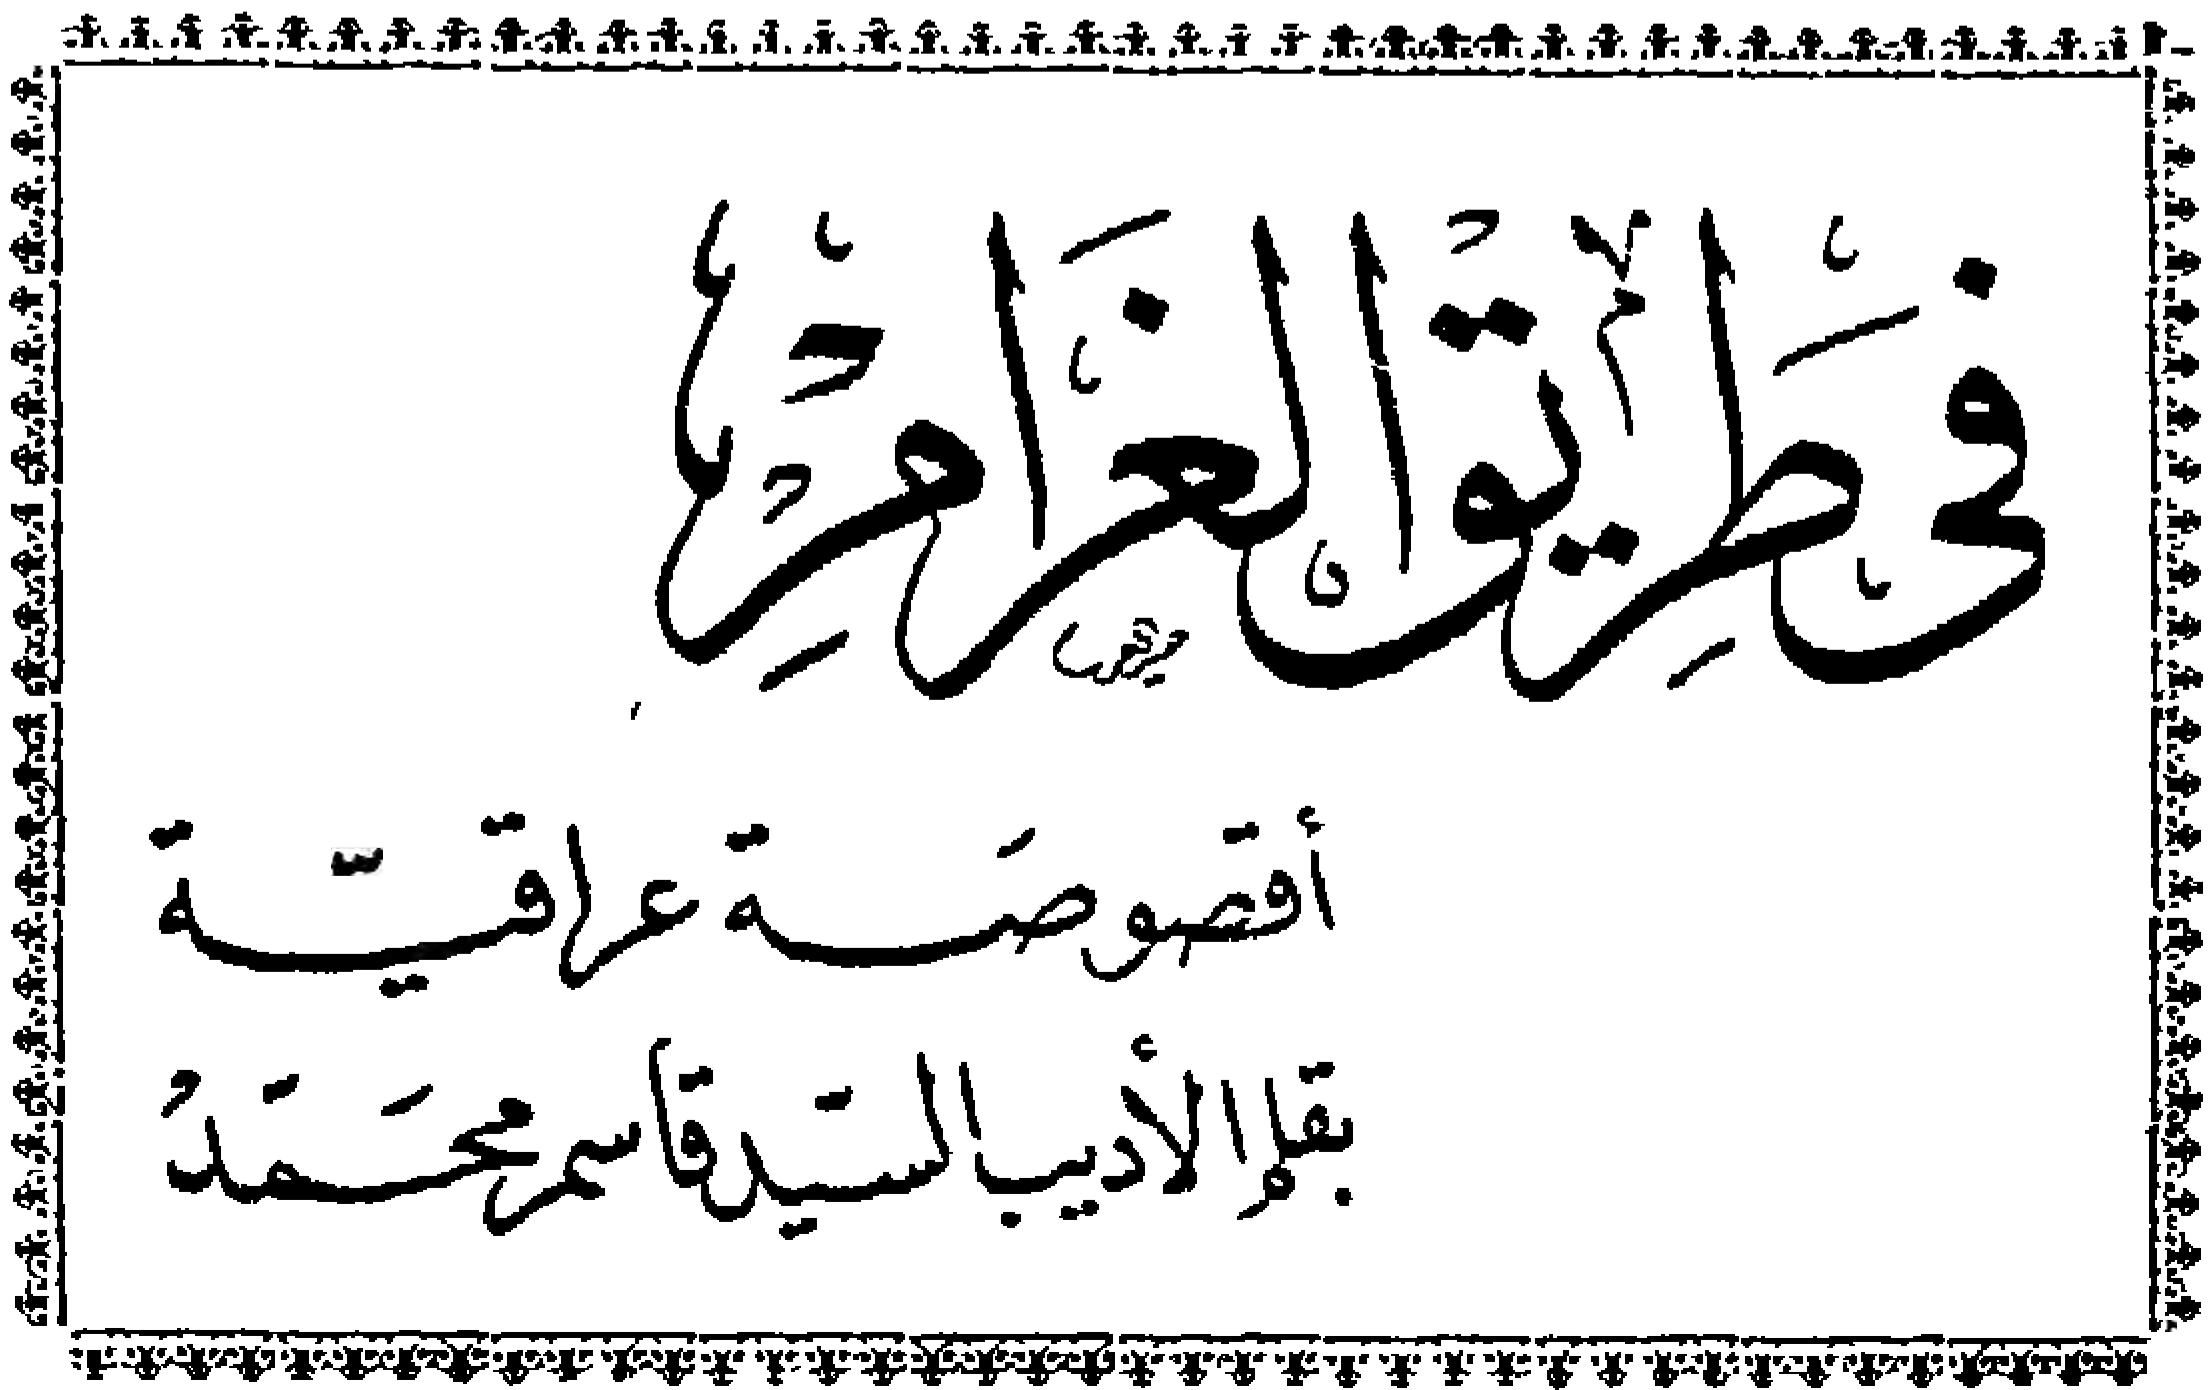 في طَرِيقِ الغَرَامِ
أقصوصَة عراقيّة
بقلم الأديب السيّد قاسم محَمّدُ